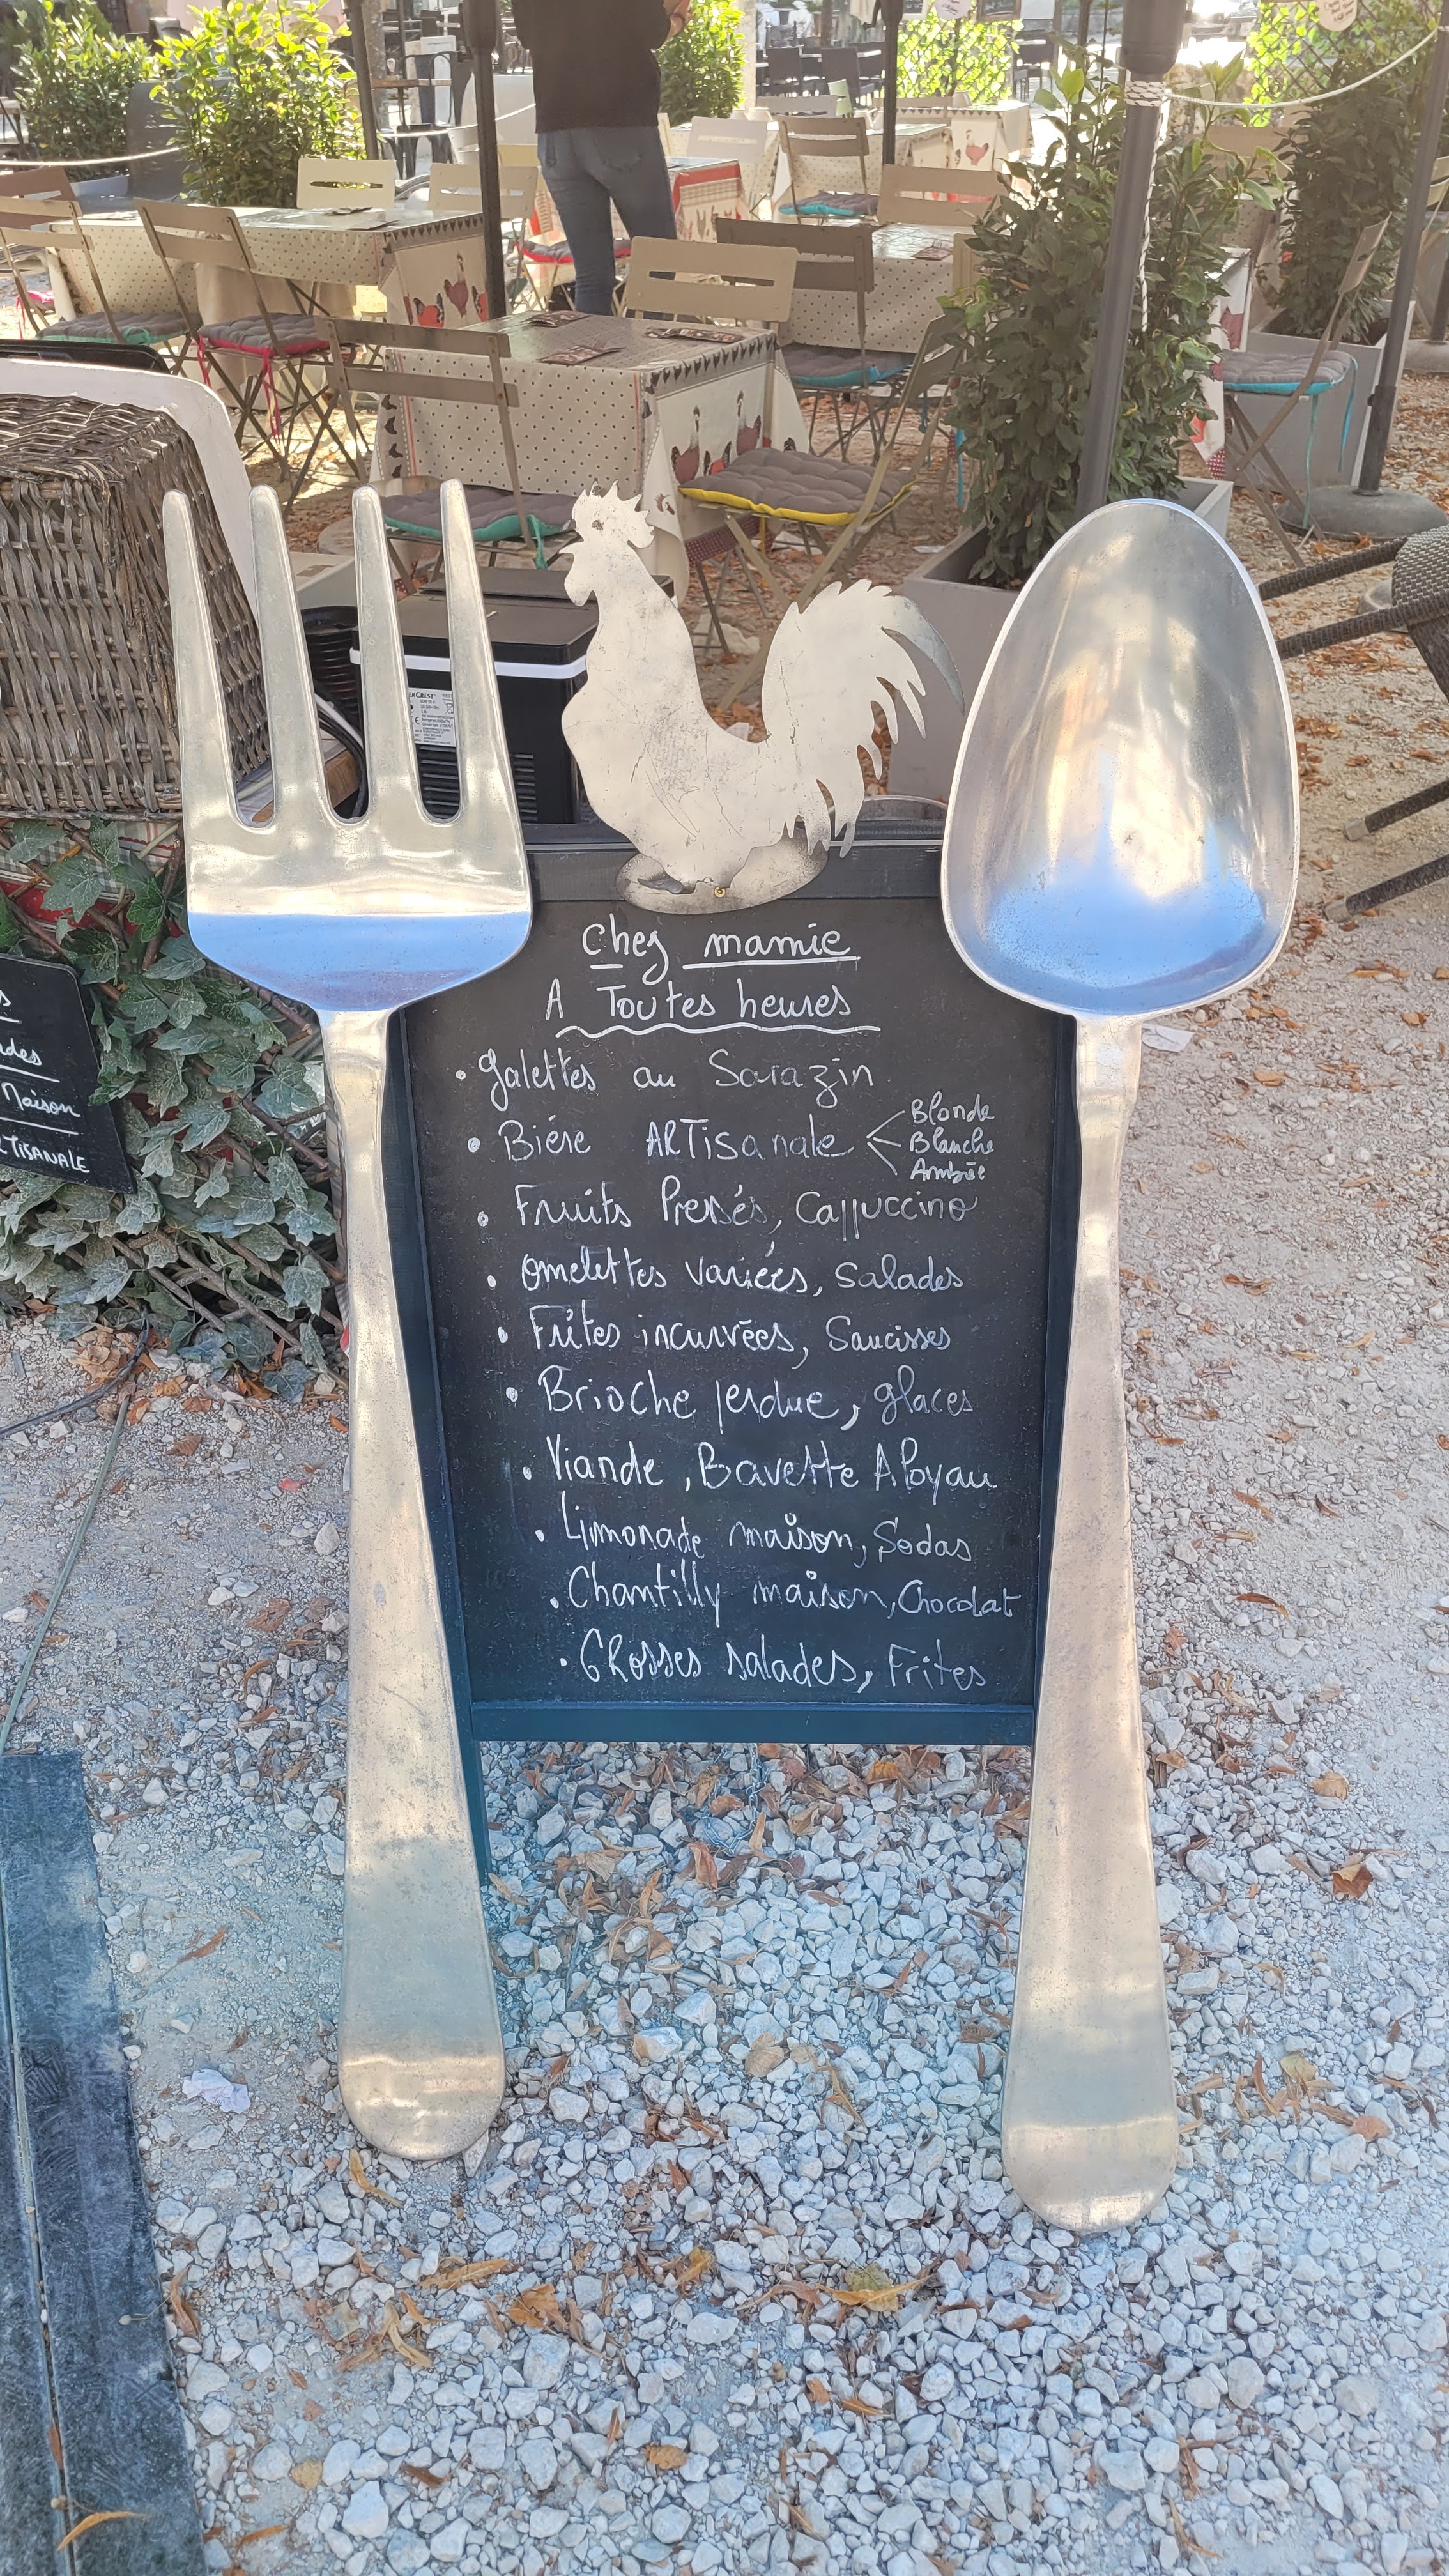 Chez mamie
A Toutes heures
• Galettes au Sarazin
• Biére ARTisanale
Blonde
Blanche
Ambrée
• Fruits Pressés, Cappuccino
• Omelettes variées, Salades
• Frites incurvées, Saucisses
• Brioche perdue, glaces
• Viande, Bavette Aloyau
• Limonade maison, Sodas
• Chantilly maison, Chocolat
• GRosses salades, Frites
Maison